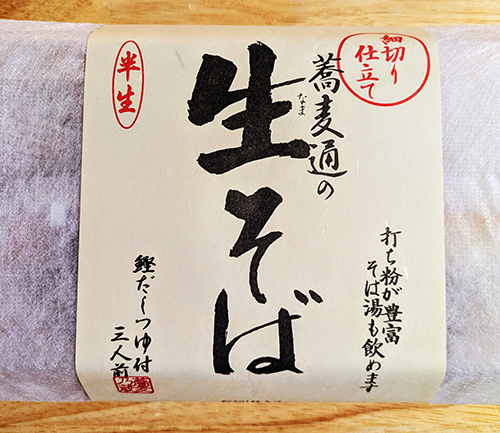 細切り
仕立て
蕎麦通の
生そば
なま
半生
打ち粉が豊富
そば湯も飲めます
鰹だしつゆ付
三人前